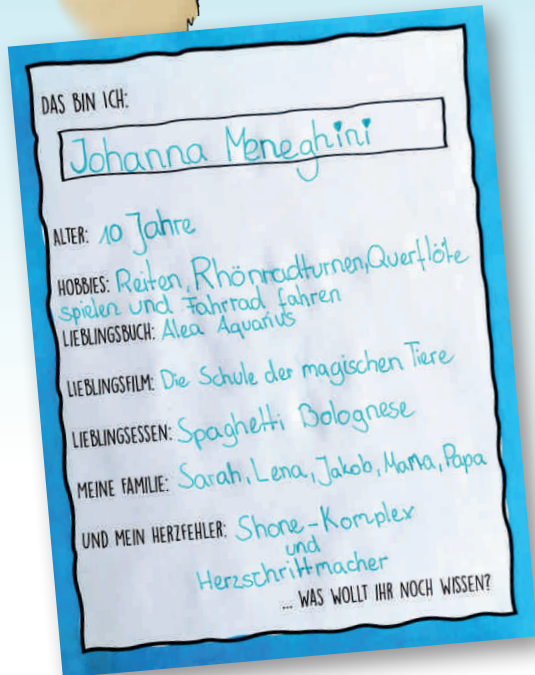 DAS BIN ICH:
Johanna Meneghini
ALTER: 10 Jahre
HOBBIES: Reiten, Rhönradturnen, Querflöte
spielen und Fahrrad fahren
LIEBLINGSBUCH: Alea Aquarius
LIEBLINGSFILM: Die Schule der magischen Tiere
LIEBLINGSESSEN: Spaghetti Bolognese
MEINE FAMILIE: Sarah, Lena, Jakob, Mama, Papa
UND MEIN HERZFEHLER: Shone-Komplex
und
Herzschrittmacher
... WAS WOLLT IHR NOCH WISSEN?